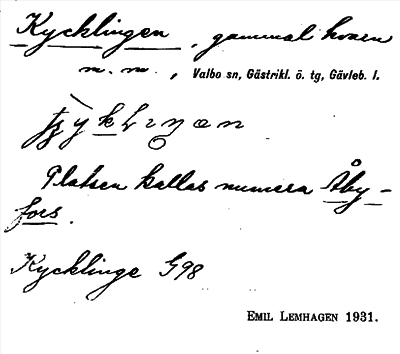 Kycklingen, gammal kvarn
m.m., Valbo sn, Gästrikl. ö. tg, Gävleb. l.
Platsen kallas numera Åby-
fors.
Kycklinge G98
EMIL LEMHAGEN 1931.